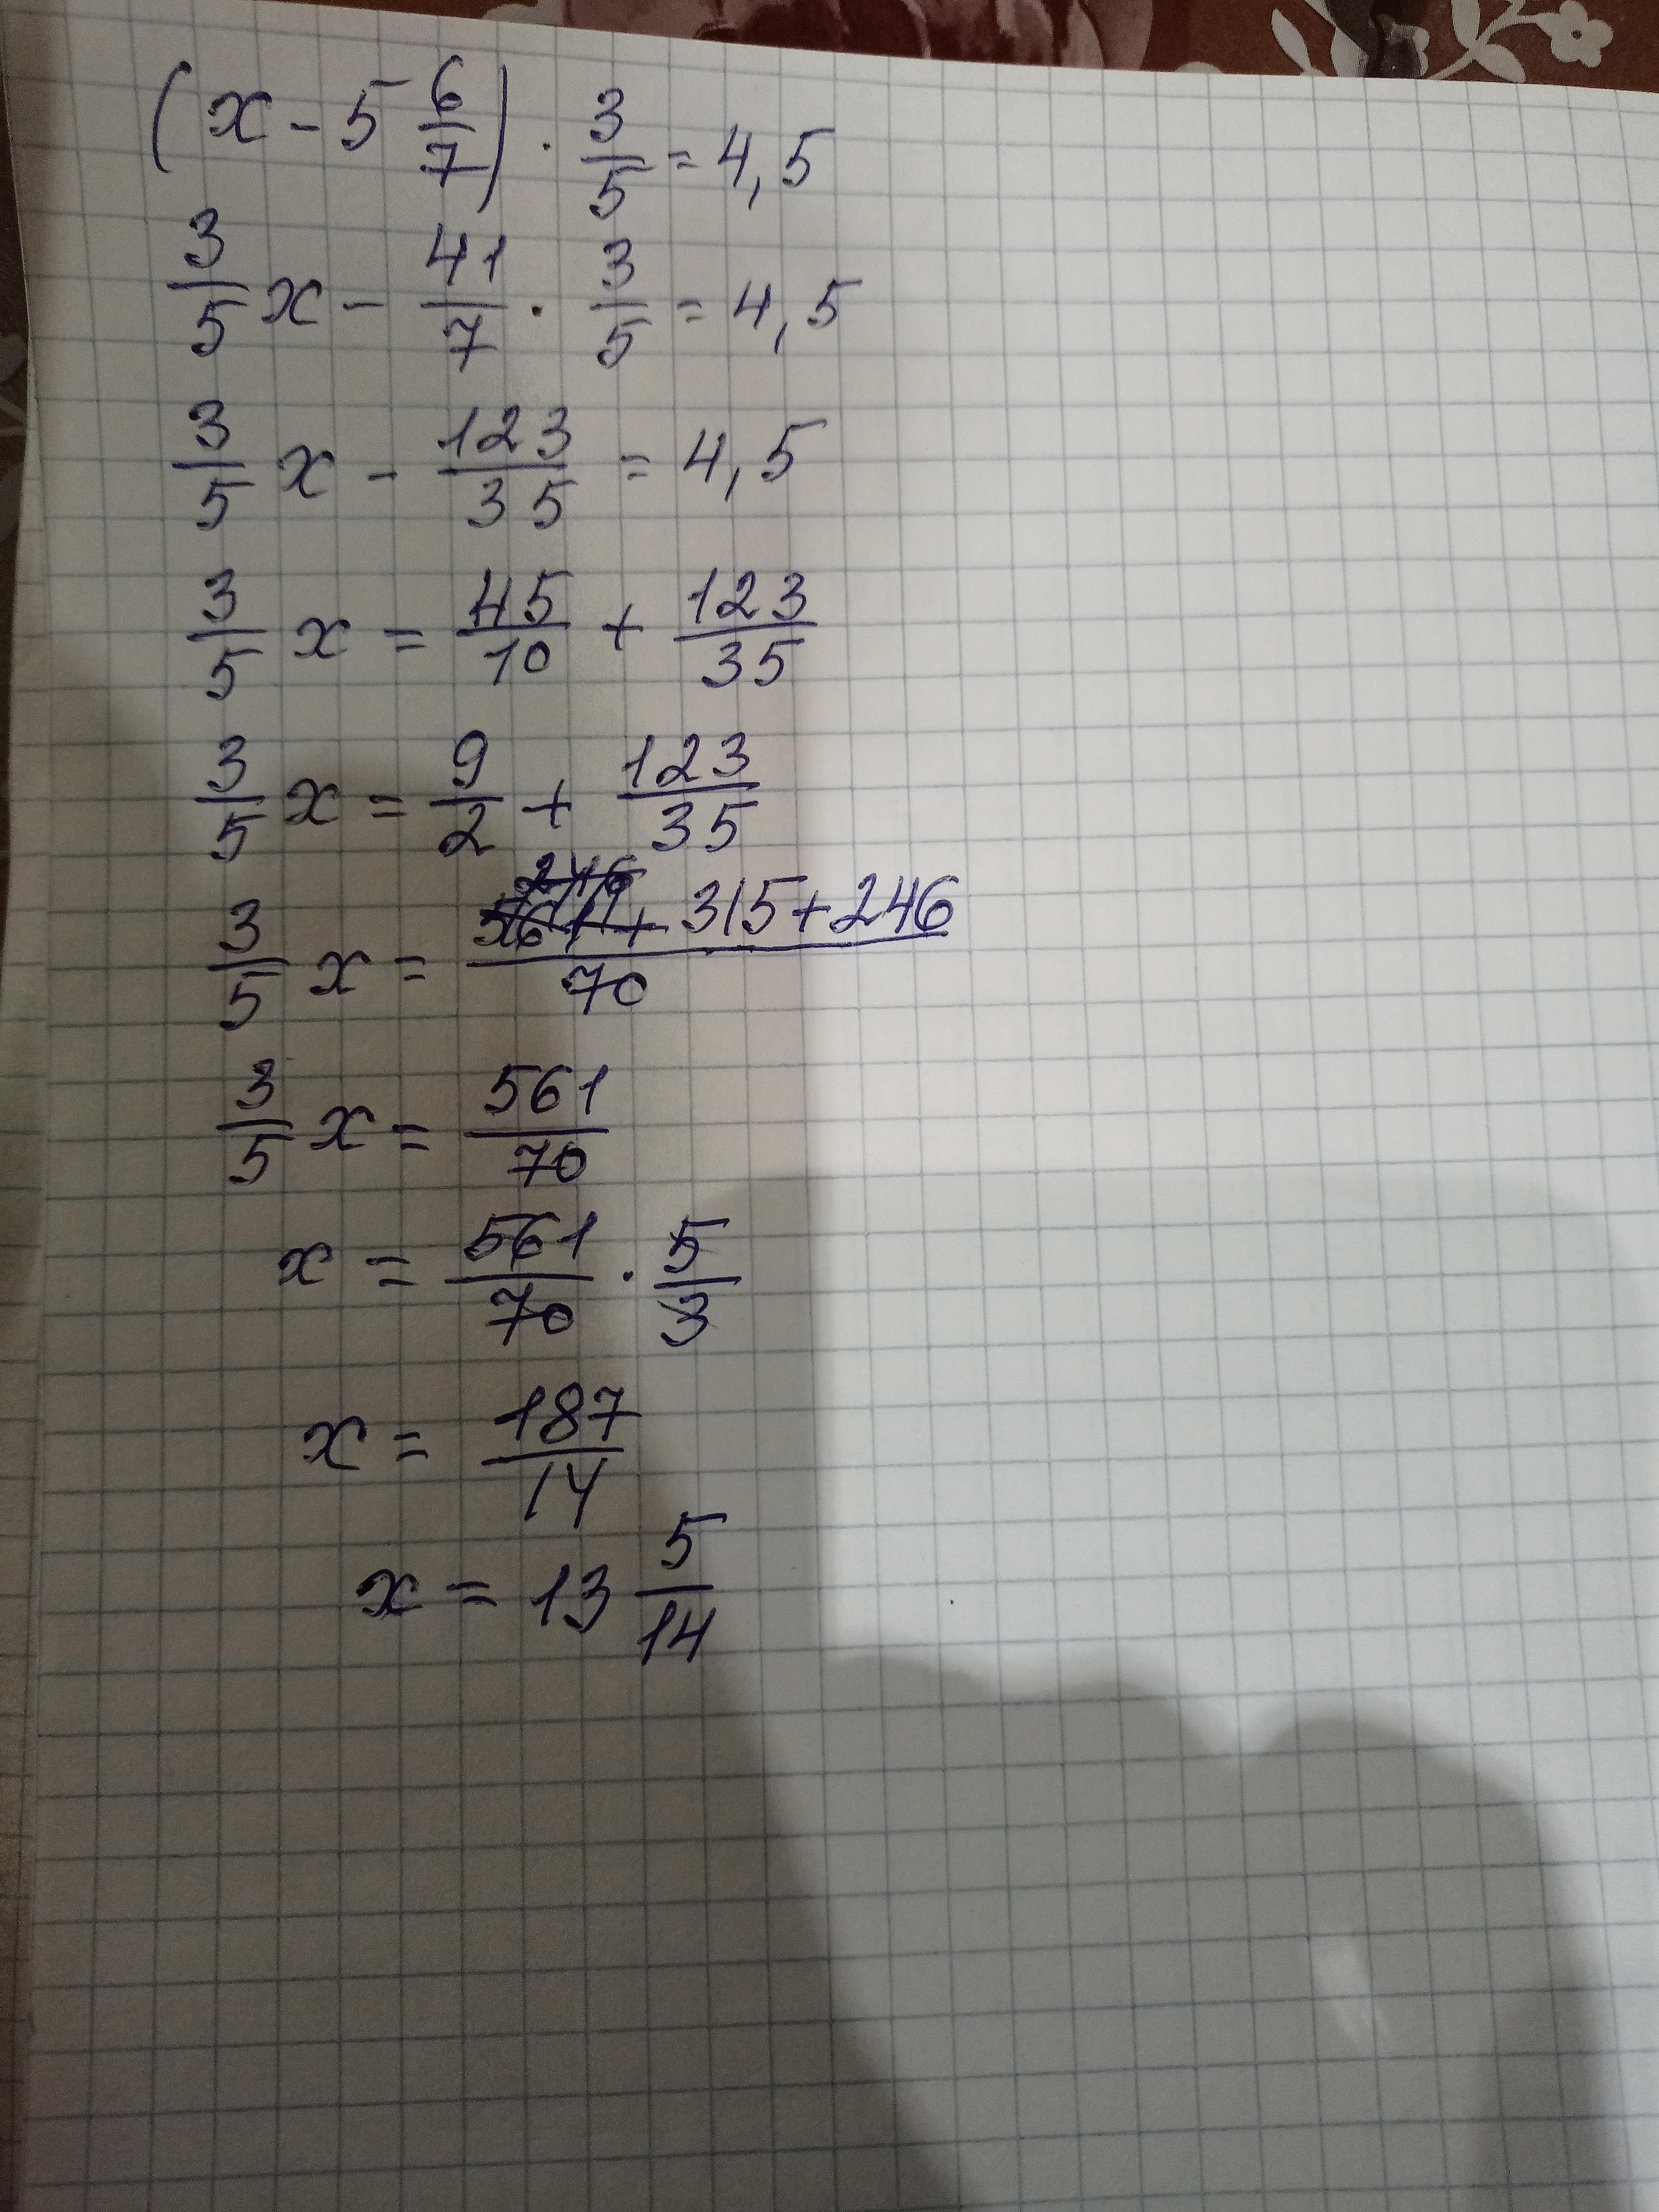 (x - 5 6/7) · 3/5 = 4,5
3/5 x - 41/7 · 3/5 = 4,5
3/5 x - 123/35 = 4,5
3/5 x = 45/10 + 123/35
3/5 x = 9/2 + 123/35
3/5 x = (315+246)/70
3/5 x = 561/70
x = 561/70 · 5/3
x = 187/14
x = 13 5/14